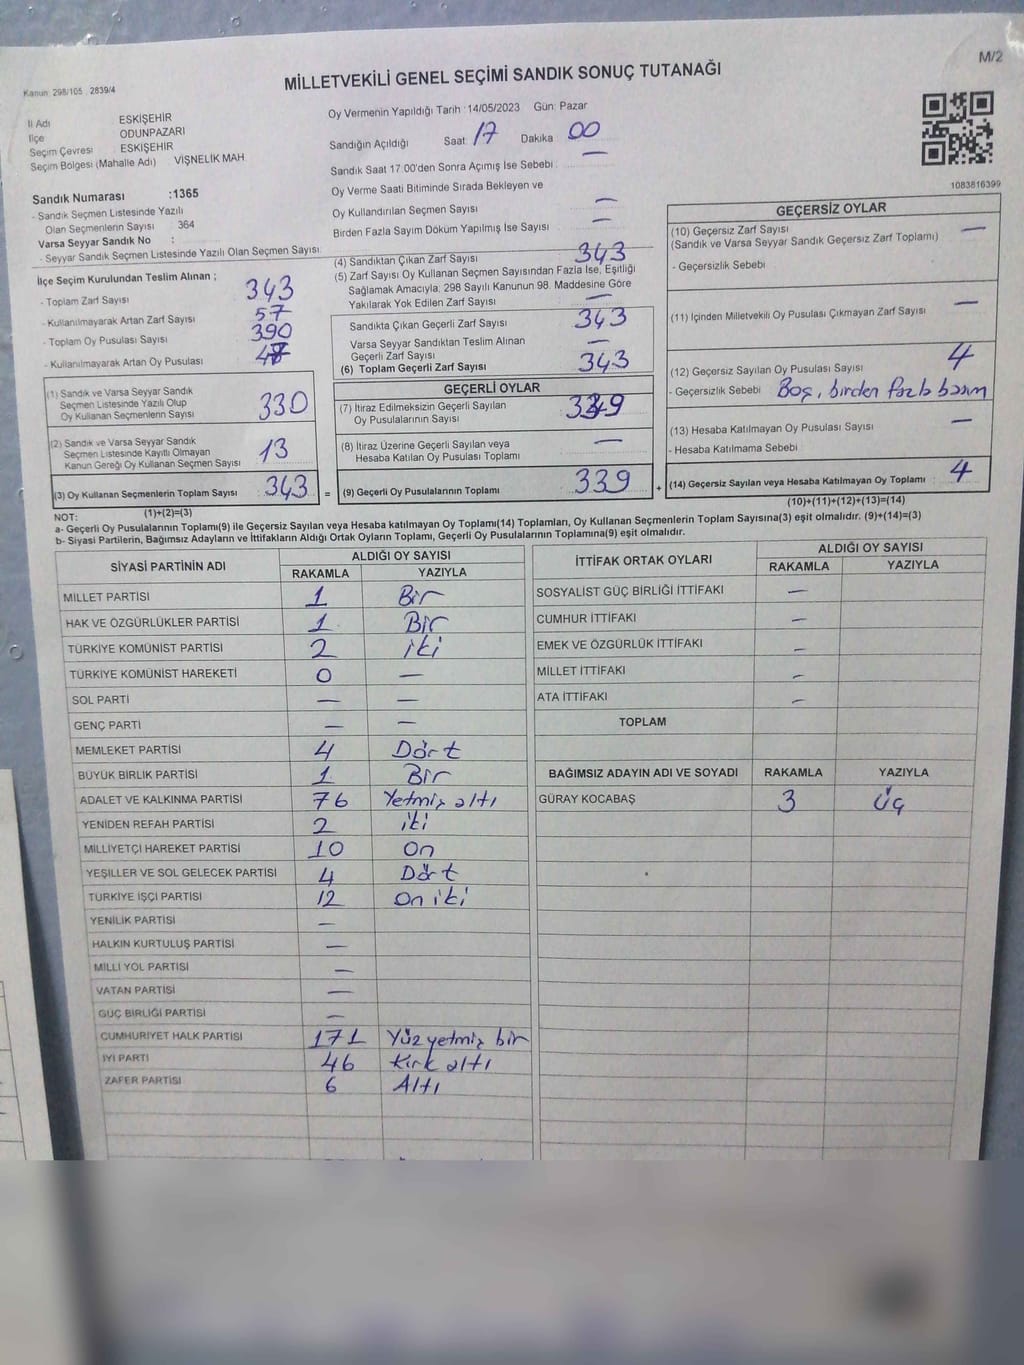 M/2
Kanun: 298/105 . 2839/4
MİLLETVEKİLİ GENEL SEÇİMİ SANDIK SONUÇ TUTANAĞI
İl Adı ESKİŞEHİR
İlçe ODUNPAZARI
Seçim Çevresi : ESKİŞEHİR
Seçim Bölgesi (Mahalle Adı) VİŞNELİK MAH.
Oy Vermenin Yapıldığı Tarih : 14/05/2023 Gün: Pazar
Sandığın Açıldığı Saat 17 Dakika 00
Sandık Saat 17:00'den Sonra Açımış İse Sebebi : —
Oy Verme Saati Bitiminde Sırada Bekleyen ve
Oy Kullandırılan Seçmen Sayısı —
Birden Fazla Sayım Döküm Yapılmış İse Sayısı —
1083816399
Sandık Numarası :1365
- Sandık Seçmen Listesinde Yazılı
Olan Seçmenlerin Sayısı : 364
Varsa Seyyar Sandık No :
- Seyyar Sandık Seçmen Listesinde Yazılı Olan Seçmen Sayısı
İlçe Seçim Kurulundan Teslim Alınan ;
- Toplam Zarf Sayısı 343
- Kullanılmayarak Artan Zarf Sayısı 57
- Toplam Oy Pusulası Sayısı 390
- Kullanılmayarak Artan Oy Pusulası
(1) Sandık ve Varsa Seyyar Sandık
Seçmen Listesinde Yazılı Olup
Oy Kullanan Seçmenlerin Sayısı 330
(2) Sandık ve Varsa Seyyar Sandık
Seçmen Listesinde Kayıtlı Olmayan
Kanun Gereği Oy Kullanan Seçmen Sayısı 13
(3) Oy Kullanan Seçmenlerin Toplam Sayısı 343 =
(1)+(2)=(3)
(4) Sandıktan Çıkan Zarf Sayısı 343
(5) Zarf Sayısı Oy Kullanan Seçmen Sayısından Fazla İse, Eşitliği
Sağlamak Amacıyla; 298 Sayılı Kanunun 98. Maddesine Göre
Yakılarak Yok Edilen Zarf Sayısı —
Sandıkta Çıkan Geçerli Zarf Sayısı 343
Varsa Seyyar Sandıktan Teslim Alınan
Geçerli Zarf Sayısı —
(6) Toplam Geçerli Zarf Sayısı 343
GEÇERLİ OYLAR
(7) İtiraz Edilmeksizin Geçerli Sayılan
Oy Pusulalarının Sayısı
(8) İtiraz Üzerine Geçerli Sayılan veya
Hesaba Katılan Oy Pusulası Toplamı —
(9) Geçerli Oy Pusulalarının Toplamı 339 +
GEÇERSİZ OYLAR
(10) Geçersiz Zarf Sayısı —
(Sandık ve Varsa Seyyar Sandık Geçersiz Zarf Toplamı)
- Geçersizlik Sebebi
(11) İçinden Milletvekili Oy Pusulası Çıkmayan Zarf Sayısı —
(12) Geçersiz Sayılan Oy Pusulası Sayısı 4
- Geçersizlik Sebebi Boş, birden fazla basım
(13) Hesaba Katılmayan Oy Pusulası Sayısı —
- Hesaba Katılmama Sebebi
(14) Geçersiz Sayılan veya Hesaba Katılmayan Oy Toplamı : 4
(10)+(11)+(12)+(13)=(14)
NOT:
a- Geçerli Oy Pusulalarının Toplamı(9) ile Geçersiz Sayılan veya Hesaba katılmayan Oy Toplamı(14) Toplamları, Oy Kullanan Seçmenlerin Toplam Sayısına(3) eşit olmalıdır. (9)+(14)=(3)
b- Siyasi Partilerin, Bağımsız Adayların ve İttifakların Aldığı Ortak Oyların Toplamı, Geçerli Oy Pusulalarının Toplamına(9) eşit olmalıdır.
SİYASİ PARTİNİN ADI ALDIĞI OY SAYISI
RAKAMLA YAZIYLA
MİLLET PARTİSİ 1 Bir
HAK VE ÖZGÜRLÜKLER PARTİSİ 1 Bir
TÜRKİYE KOMÜNİST PARTİSİ 2 iki
TÜRKİYE KOMÜNİST HAREKETİ 0 —
SOL PARTİ — —
GENÇ PARTİ — —
MEMLEKET PARTİSİ 4 Dört
BÜYÜK BİRLİK PARTİSİ 1 Bir
ADALET VE KALKINMA PARTİSİ 76 Yetmiş altı
YENİDEN REFAH PARTİSİ 2 iki
MİLLİYETÇİ HAREKET PARTİSİ 10 On
YEŞİLLER VE SOL GELECEK PARTİSİ 4 Dört
TÜRKİYE İŞÇİ PARTİSİ 12 On iki
YENİLİK PARTİSİ —
HALKIN KURTULUŞ PARTİSİ —
MİLLİ YOL PARTİSİ —
VATAN PARTİSİ —
GÜÇ BİRLİĞİ PARTİSİ —
CUMHURİYET HALK PARTİSİ 171 Yüz yetmiş bir
İYİ PARTİ 46 Kırk altı
ZAFER PARTİSİ 6 Altı
İTTİFAK ORTAK OYLARI ALDIĞI OY SAYISI
RAKAMLA YAZIYLA
SOSYALİST GÜÇ BİRLİĞİ İTTİFAKI —
CUMHUR İTTİFAKI —
EMEK VE ÖZGÜRLÜK İTTİFAKI —
MİLLET İTTİFAKI —
ATA İTTİFAKI —
TOPLAM
BAĞIMSIZ ADAYIN ADI VE SOYADI RAKAMLA YAZIYLA
GÜRAY KOCABAŞ 3 Üç